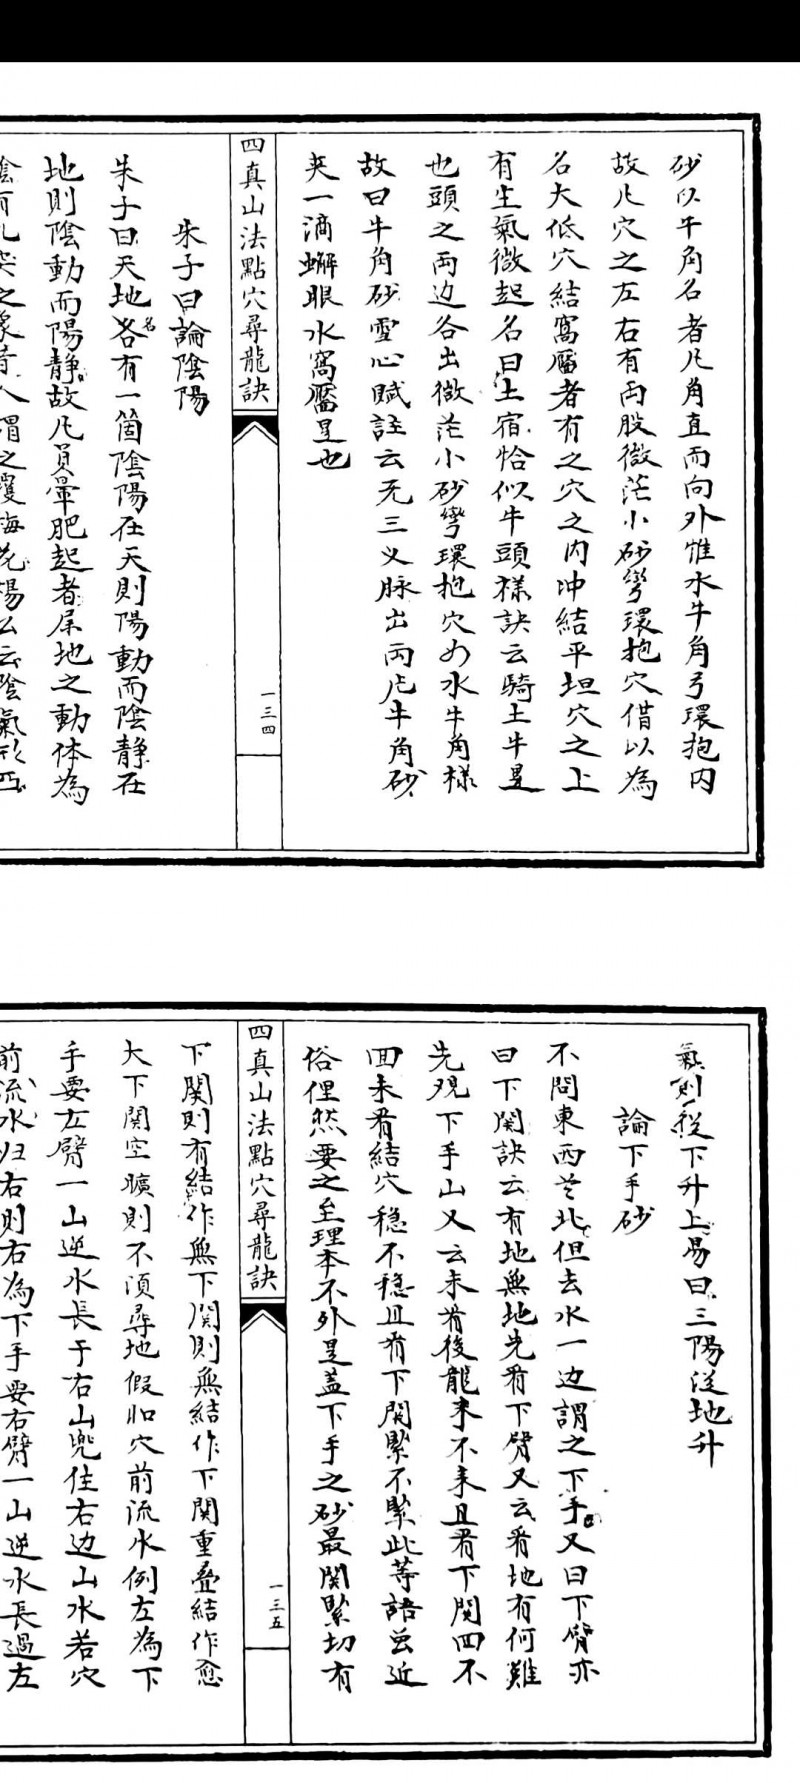 砂以牛角名者凡角直而向外惟水牛角弓環抱内
故凡穴之左右有両股微茫小砂彎環抱穴借以為
名大低穴結窩靨者有之穴之内冲結平坦穴之上
有生氣微起名曰土宿恰似牛頭樣訣云騎土牛是
也頭之両边各出微茫小砂彎環抱穴如水牛角樣
故曰牛角砂雪心賦註云无三义脉出両片牛角砂
夹一滴蠏眼水窩靨是也
四真山法點穴尋龍訣
一三四
朱子曰論陰陽
朱子曰天地各名有一箇陰陽在天則陽動而陰静在
地則陰動而陽静故凡員暈肥起者屎地之動体為
陰有凡突之象昔人謂之瓊海花楊公云陰氣形
氣則從下升上易曰三陽從地升
論下手砂
不問東西北但去水一边謂之下手又曰下臂亦
曰下関訣云有地無地先看下臂又云看地有何難
先观下手山又云未看後龍来不来且看下関回不
回未看結穴穏不穏且看下関緊不緊此等語虽近
俗俚然要之至理本不外是盖下手之砂最関緊切有
四真山法點穴尋龍訣
一三五
下関則有結作無下関則無結作下関重叠結作愈
大下関空曠則不湏尋地假如穴前流水例左為下
手要左臂一山逆水長于右山兜住右边山水若穴
前流水归右則右為下手要右臂一山逆水長過左